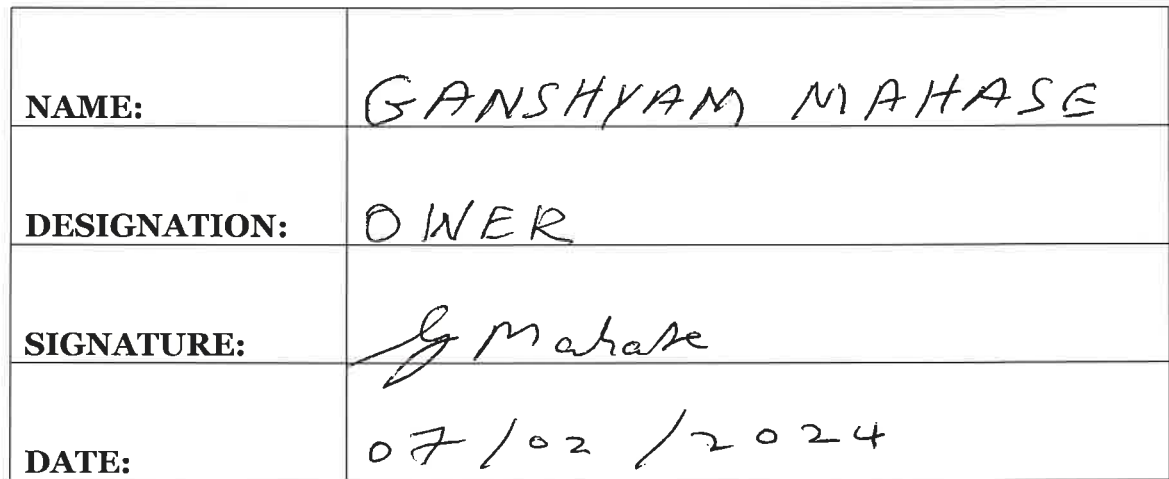 NAME: GANSHYAM MAHASE
DESIGNATION: OWER
SIGNATURE: G Mahase
DATE: 07/02/2024